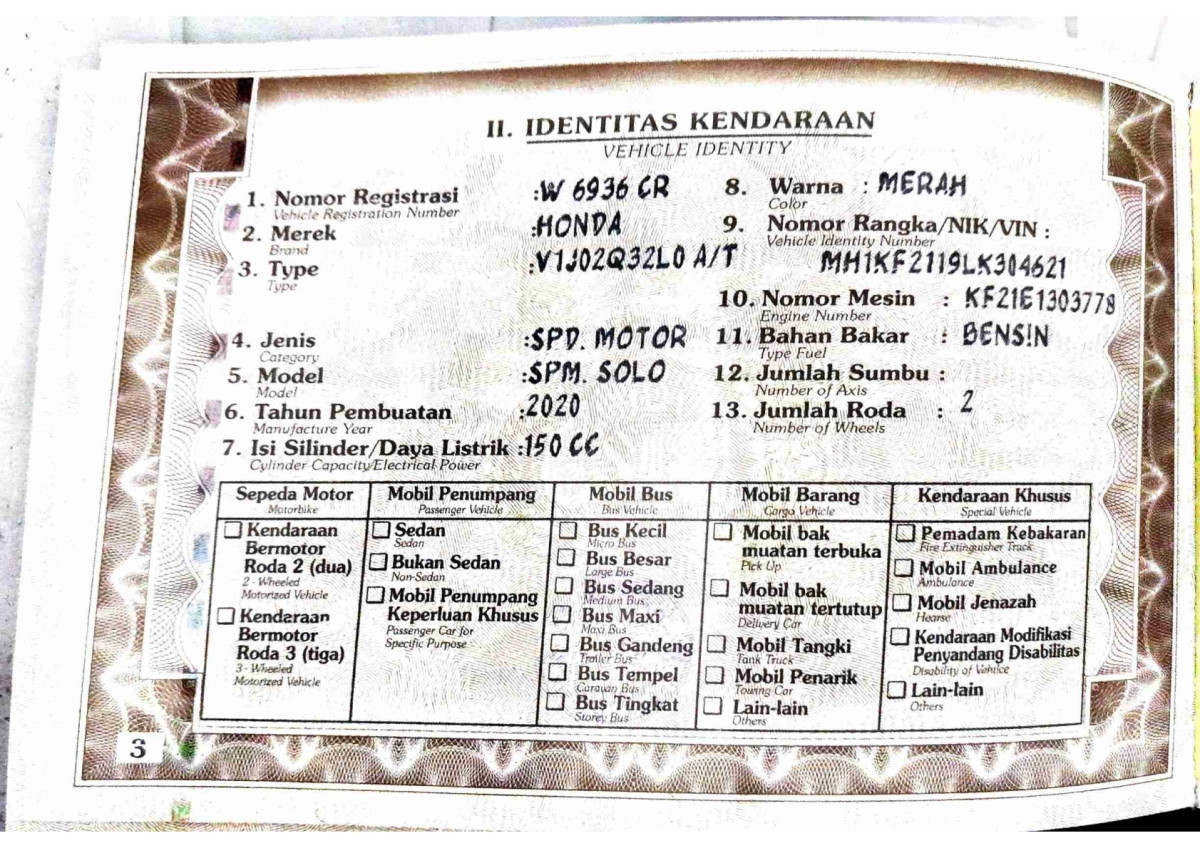 II. IDENTITAS KENDARAAN
VEHICLE IDENTITY
1. Nomor Registrasi :W 6936 CR
Vehicle Registration Number
2. Merek :HONDA
Brand
3. Type :V1J02Q32L0 A/T
Type
4. Jenis :SPD. MOTOR
Category
5. Model :SPM. SOLO
Model
6. Tahun Pembuatan :2020
Manufacture Year
7. Isi Silinder/Daya Listrik :150 CC
Cylinder Capacity/Electrical Power
8. Warna : MERAH
Color
9. Nomor Rangka/NIK/VIN :
Vehicle Identity Number
MH1KF2119LK304621
10. Nomor Mesin : KF21E1303778
Engine Number
11. Bahan Bakar : BENSIN
Type Fuel
12. Jumlah Sumbu :
Number of Axis
13. Jumlah Roda : 2
Number of Wheels
Sepeda Motor
Motorbike
Kendaraan
Bermotor
Roda 2 (dua)
2 - Wheeled
Motorized Vehicle
Kendaraan
Bermotor
Roda 3 (tiga)
3 - Wheeled
Motorized Vehicle
Mobil Penumpang
Passenger Vehicle
Sedan
Sedan
Bukan Sedan
Non-Sedan
Mobil Penumpang
Keperluan Khusus
Passenger Car for
Specific Purpose
Mobil Bus
Bus Vehicle
Bus Kecil
Micro Bus
Bus Besar
Large Bus
Bus Sedang
Medium Bus
Bus Maxi
Maxi Bus
Bus Gandeng
Trailer Bus
Bus Tempel
Caravan Bus
Bus Tingkat
Storey Bus
Mobil Barang
Cargo Vehicle
Mobil bak
muatan terbuka
Pick Up
Mobil bak
muatan tertutup
Delivery Car
Mobil Tangki
Tank Truck
Mobil Penarik
Towing Car
Lain-lain
Others
Kendaraan Khusus
Special Vehicle
Pemadam Kebakaran
Fire Extinguisher Truck
Mobil Ambulance
Ambulance
Mobil Jenazah
Hearse
Kendaraan Modifikasi
Penyandang Disabilitas
Disability of Vehicle
Lain-lain
Others
3